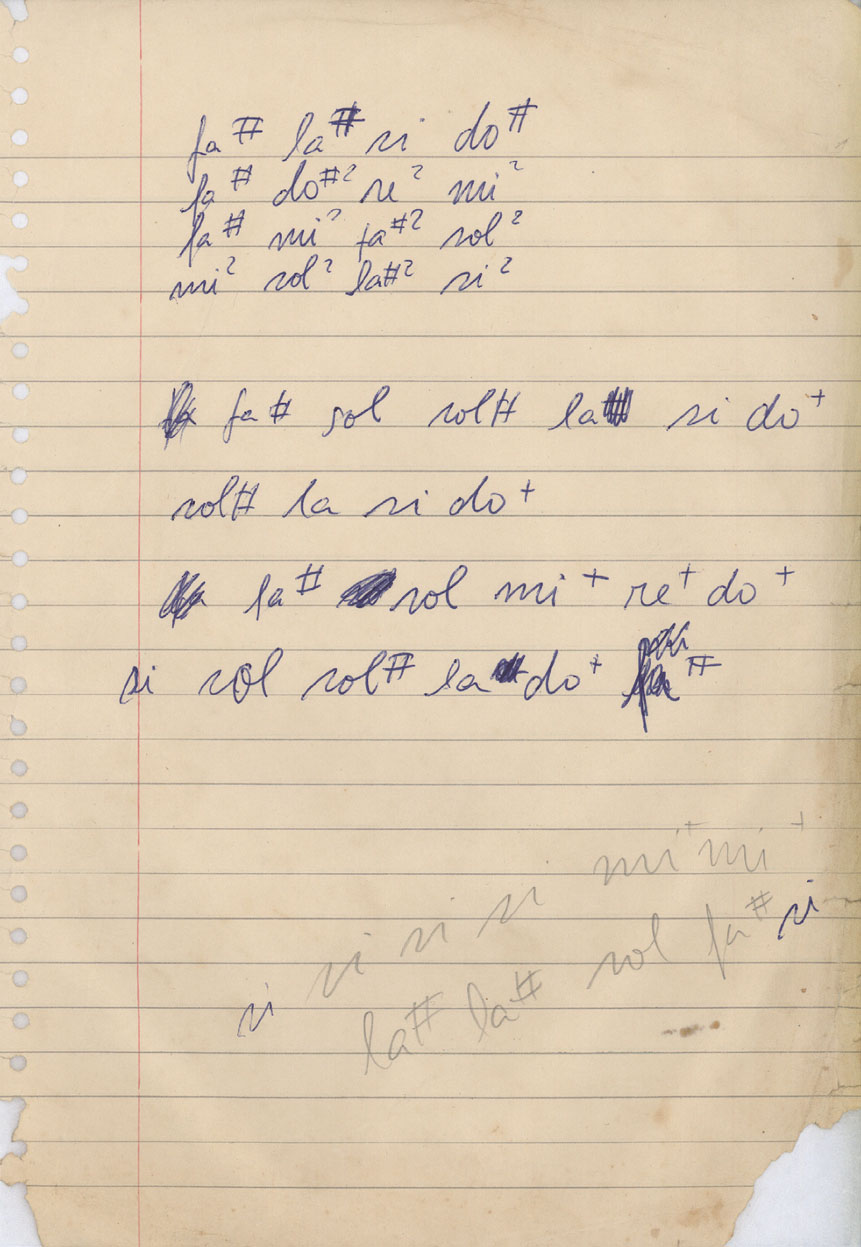 fa# la# si do#
fa# do#² re² mi²
la# mi² fa#² sol²
mi² sol² la#² si²
fa# sol sol# la si do+
sol# la si do+
la# sol mi+ re+ do+
si sol sol# la do+
si si si si mi+ mi+
la# la# sol fa# si